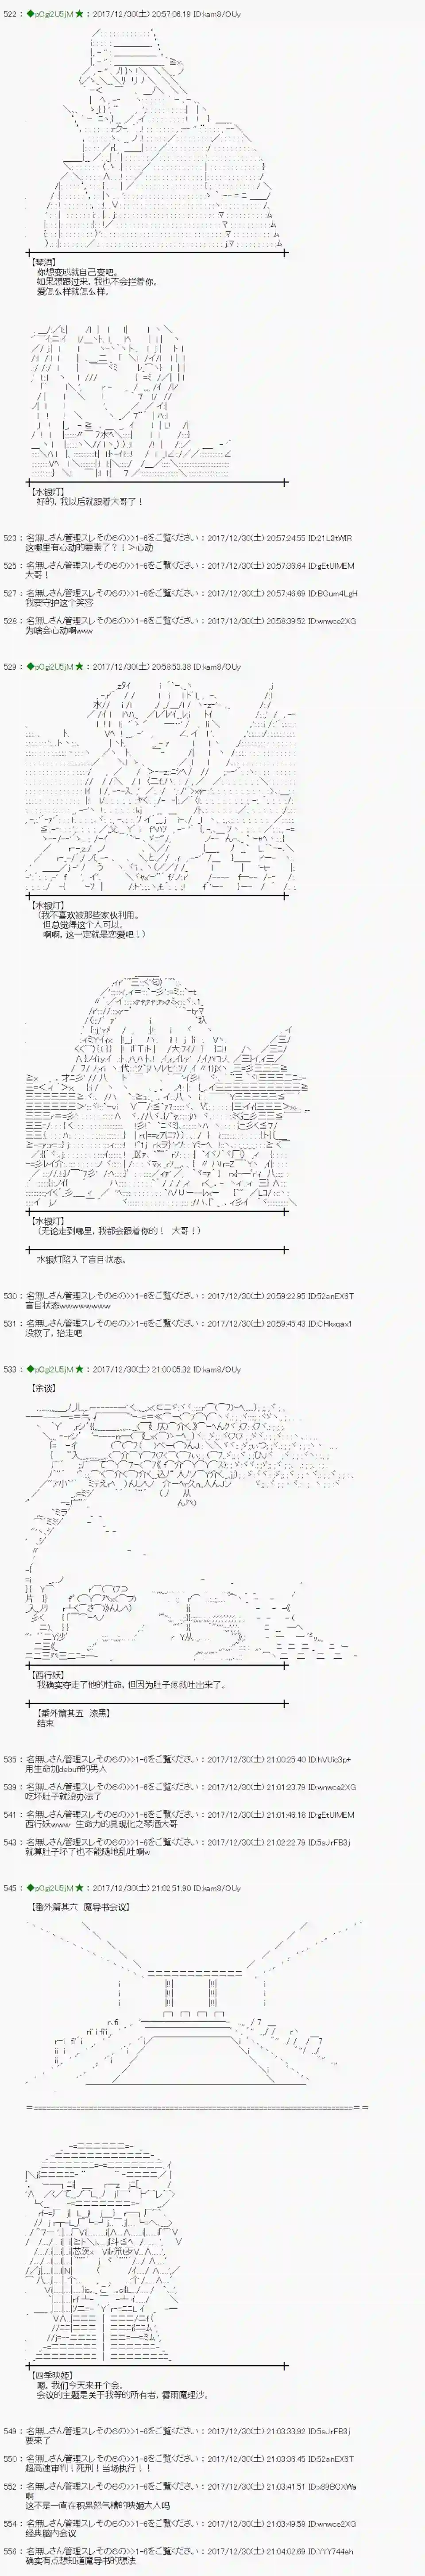 522 : ◆pOgi2U5jM ★ : 2017/12/30(土) 20:57:06.19 ID:kam8/OUy
【琴酒】
你想变成就自己变吧。
如果想跟过来，我也不会拦着你。
爱怎么样就怎么样。
【水银灯】
好的，我以后就跟着大哥了！
523 : 名無しさん管理スレその6の>>1-6をご覧ください : 2017/12/30(土) 20:57:24.55 ID:21L3tWIR
这哪里有心动的要素了？！>心动
525 : 名無しさん管理スレその6の>>1-6をご覧ください : 2017/12/30(土) 20:57:36.64 ID:gEtUlMEM
大哥！
527 : 名無しさん管理スレその6の>>1-6をご覧ください : 2017/12/30(土) 20:57:46.69 ID:BCum4LgH
我要守护这个笑容
528 : 名無しさん管理スレその6の>>1-6をご覧ください : 2017/12/30(土) 20:58:39.52 ID:wnwce2XG
为啥会心动啊www
529 : ◆pOgi2U5jM ★ : 2017/12/30(土) 20:58:53.38 ID:kam8/OUy
【水银灯】
（我不喜欢被那些家伙利用。
但总觉得这个人可以。
啊啊，这一定就是恋爱吧！）
【水银灯】
（无论走到哪里，我都会跟着你的！ 大哥！）
水银灯陷入了盲目状态。
530 : 名無しさん管理スレその6の>>1-6をご覧ください : 2017/12/30(土) 20:59:22.95 ID:52anEX6T
盲目状态wwwwwwww
531 : 名無しさん管理スレその6の>>1-6をご覧ください : 2017/12/30(土) 20:59:45.43 ID:CHkxqax1
没救了，抬走吧
533 : ◆pOgi2U5jM ★ : 2017/12/30(土) 21:00:05.32 ID:kam8/OUy
【余谈】
【西行妖】
我确实夺走了他的性命，但因为肚子疼就吐出来了。
【番外篇其五 漆黑】
结束
535 : 名無しさん管理スレその6の>>1-6をご覧ください : 2017/12/30(土) 21:00:25.40 ID:hVUic3p+
用生命加debuff的男人
539 : 名無しさん管理スレその6の>>1-6をご覧ください : 2017/12/30(土) 21:01:23.79 ID:wnwce2XG
吃坏肚子就没办法了
541 : 名無しさん管理スレその6の>>1-6をご覧ください : 2017/12/30(土) 21:01:46.18 ID:gEtUlMEM
西行妖www 生命力的具现化之琴酒大哥
543 : 名無しさん管理スレその6の>>1-6をご覧ください : 2017/12/30(土) 21:02:22.79 ID:5sJrFB3j
就算肚子坏了也不能随地乱吐啊w
545 : ◆pOgi2U5jM ★ : 2017/12/30(土) 21:02:51.90 ID:kam8/OUy
【番外篇其六 魔导书会议】
【四季映姬】
嗯，我们今天来开个会。
会议的主题是关于我等的所有者，雾雨魔理沙。
549 : 名無しさん管理スレその6の>>1-6をご覧ください : 2017/12/30(土) 21:03:33.92 ID:5sJrFB3j
要来了
550 : 名無しさん管理スレその6の>>1-6をご覧ください : 2017/12/30(土) 21:03:36.45 ID:52anEX6T
超高速审判！死刑！当场执行！！
552 : 名無しさん管理スレその6の>>1-6をご覧ください : 2017/12/30(土) 21:03:41.51 ID:x89BCXWa
啊
这不是一直在积累怨气槽的映姬大人吗
554 : 名無しさん管理スレその6の>>1-6をご覧ください : 2017/12/30(土) 21:03:49.59 ID:wnwce2XG
经典脑内会议
556 : 名無しさん管理スレその6の>>1-6をご覧ください : 2017/12/30(土) 21:04:02.69 ID:YYY744eh
确实有点想知道魔导书的想法